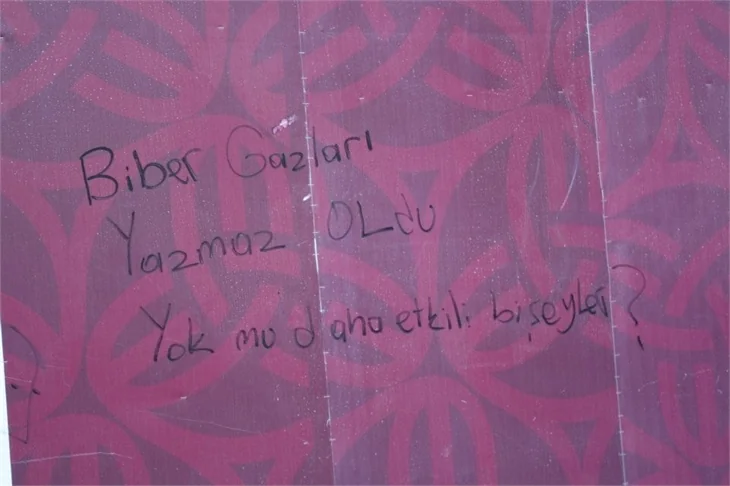 Biber Gazları
Yazmaz OLdu
Yok mu daha etkili bişeyler?